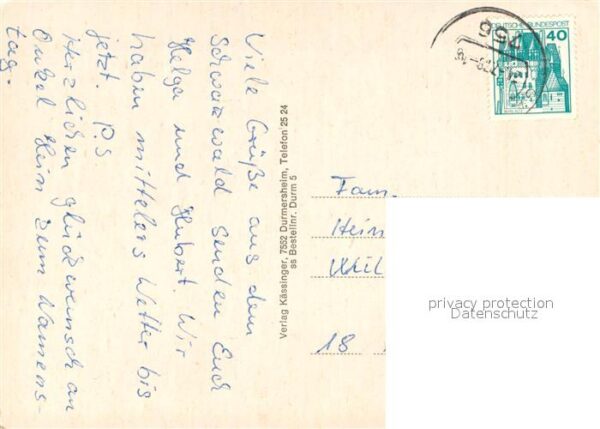 Viele Grüße aus dem
Schwarzwald senden Euch
Helga und Hubert. Wir
haben mittelers Wetter bis
jetzt. P.S
Herzlichen Glückwunsch an
Onkel Hein zum Namens-
tag.
Verlag Kässinger, 7552 Durmersheim, Telefon 25 24
ss Bestellnr. Durm 5
DEUTSCHE BUNDESPOST
40
Fam.
Hein
18
privacy protection
Datenschutz